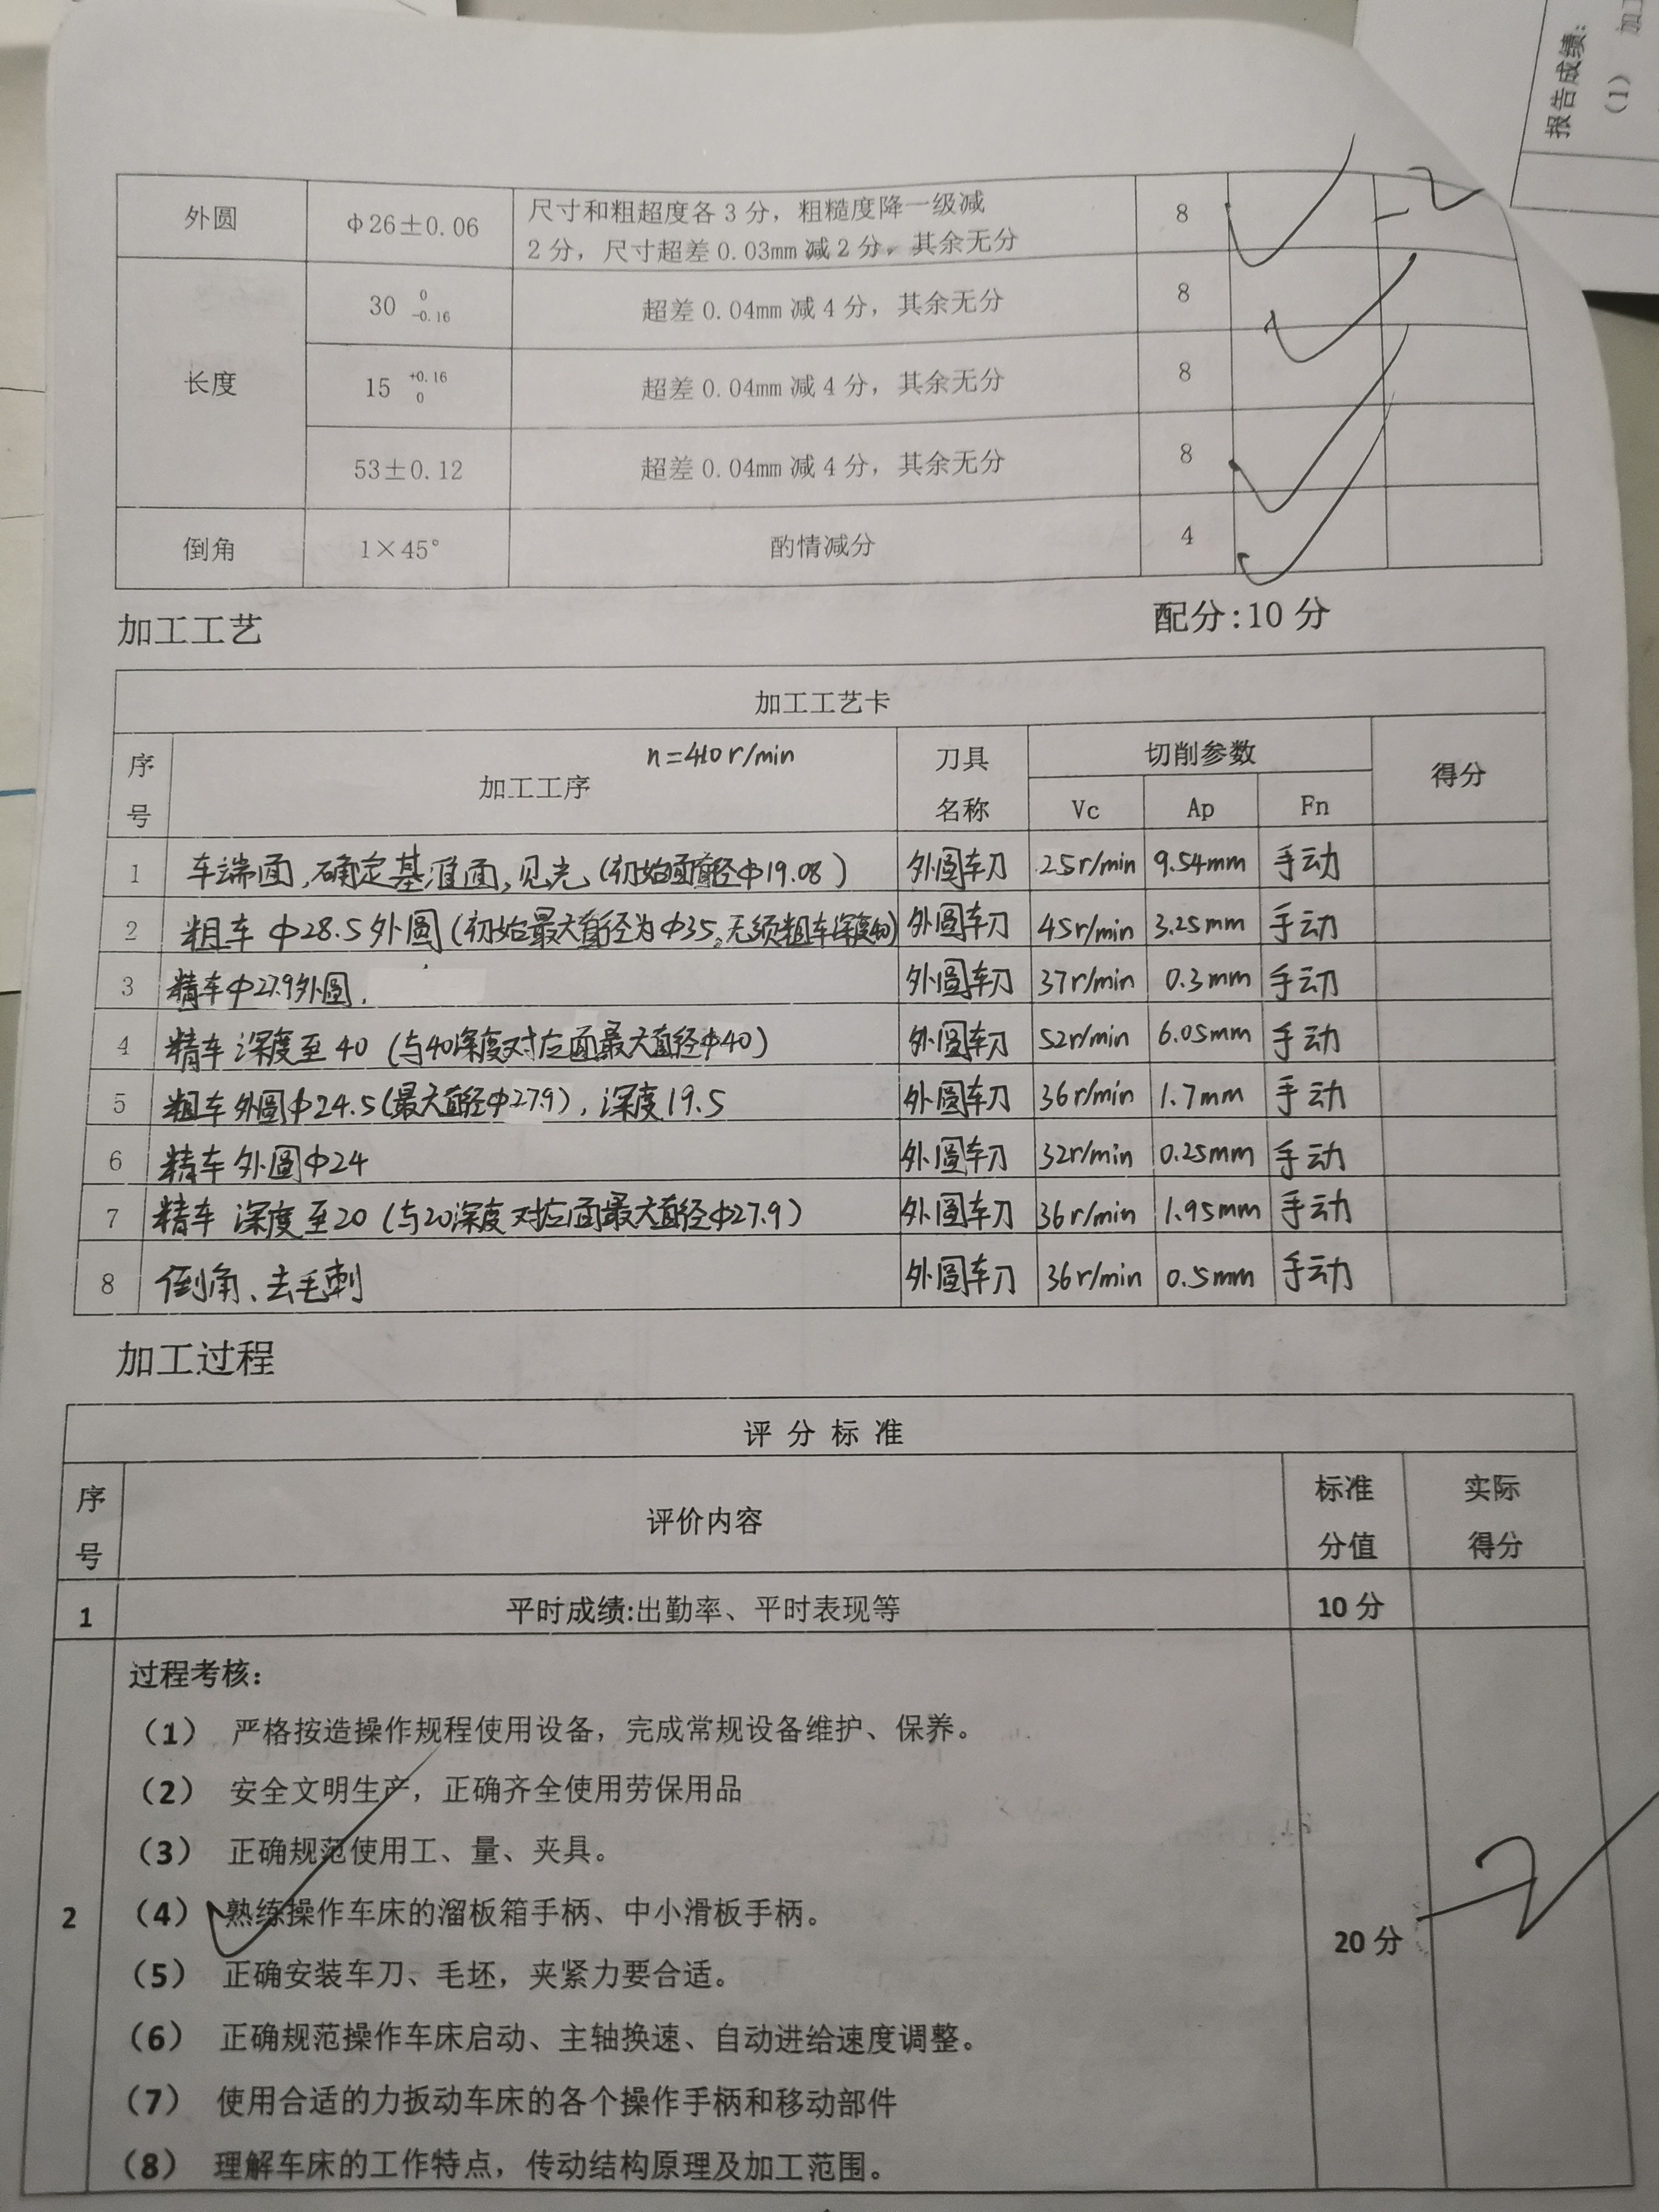 报告成绩：
（1） 加工
外圆 φ26±0.06 尺寸和粗超度各3分，粗糙度降一级减2分，尺寸超差0.03mm减2分，其余无分 8 -2
长度 30 0 -0.16 超差0.04mm减4分，其余无分 8
15 +0.16 0 超差0.04mm减4分，其余无分 8
53±0.12 超差0.04mm减4分，其余无分 8
倒角 1×45° 酌情减分 4
加工工艺 配分:10分
加工工艺卡
序号 加工工序 n=410r/min 刀具名称 切削参数 得分
Vc Ap Fn
1 车端面,确定基准面,见光(初始面直径φ19.08) 外圆车刀 25r/min 9.54mm 手动
2 粗车φ28.5外圆(初始最大直径为φ35,无须粗车深度40) 外圆车刀 45r/min 3.25mm 手动
3 精车φ27.9外圆. 外圆车刀 37r/min 0.3mm 手动
4 精车深度至40(与40深度对应面最大直径φ40) 外圆车刀 52r/min 6.05mm 手动
5 粗车外圆φ24.5(最大直径φ27.9),深度19.5 外圆车刀 36r/min 1.7mm 手动
6 精车外圆φ24 外圆车刀 32r/min 0.25mm 手动
7 精车深度至20(与20深度对应面最大直径φ27.9) 外圆车刀 36r/min 1.95mm 手动
8 倒角、去毛刺 外圆车刀 36r/min 0.5mm 手动
加工过程
评分标准
序号 评价内容 标准分值 实际得分
1 平时成绩:出勤率、平时表现等 10分
2 过程考核： 20分 -2
（1） 严格按造操作规程使用设备，完成常规设备维护、保养。
（2） 安全文明生产，正确齐全使用劳保用品
（3） 正确规范使用工、量、夹具。
（4） 熟练操作车床的溜板箱手柄、中小滑板手柄。
（5） 正确安装车刀、毛坯，夹紧力要合适。
（6） 正确规范操作车床启动、主轴换速、自动进给速度调整。
（7） 使用合适的力扳动车床的各个操作手柄和移动部件
（8） 理解车床的工作特点，传动结构原理及加工范围。